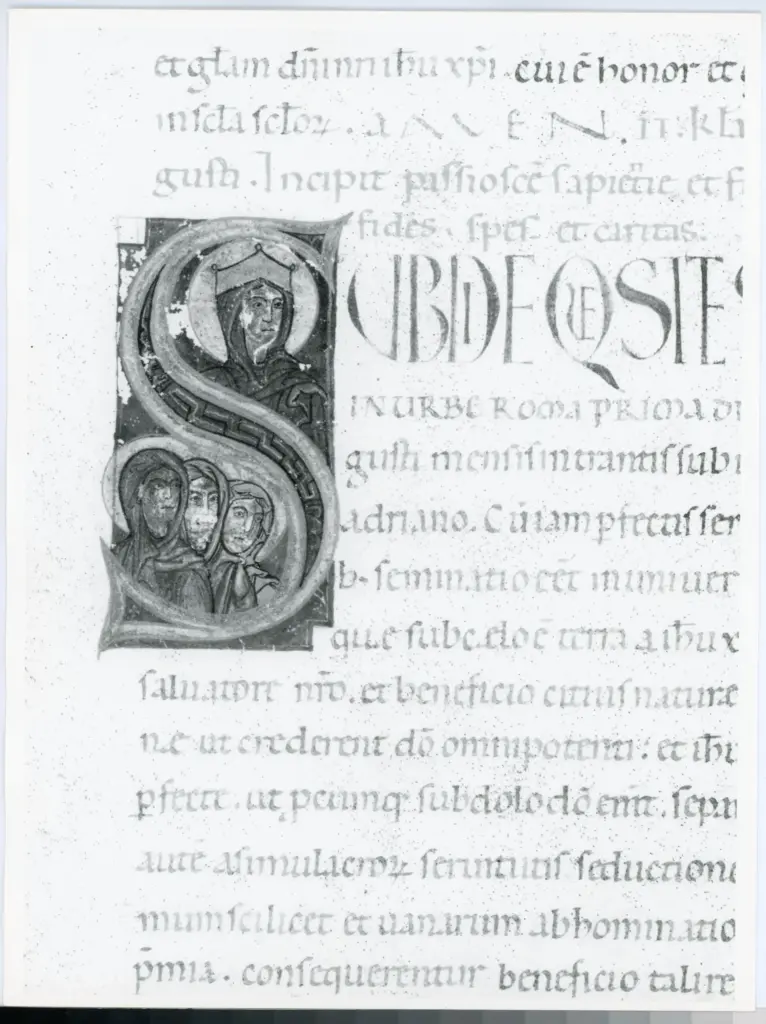 et gl̄am dn̄i nr̄i ih̄u xp̄i. cui ē honor et
in scl̄a scl̄oꝝ. AMEN. II. kl̄
gusti. Incipit passio scē sapientie et
fides. spes. et caritas.
SUBDEQUE SITE
IN URBE ROMA PRIMA DI
gusti mensis intrantis sub
adriano. Cū iam pfectis ser
b. seminatio eēt in univer
que sub celo ē terra a ih̄u x
salvatore nr̄o. et beneficio nature
ne ut crederent dō omnipotenti: et ih̄u
ꝑfecte. ut sub dolo dō
autē a simulacroꝝ servitutis seductione
mum scilicet et vanarum abhominatio
p̄mia. consequerentur beneficio tali re